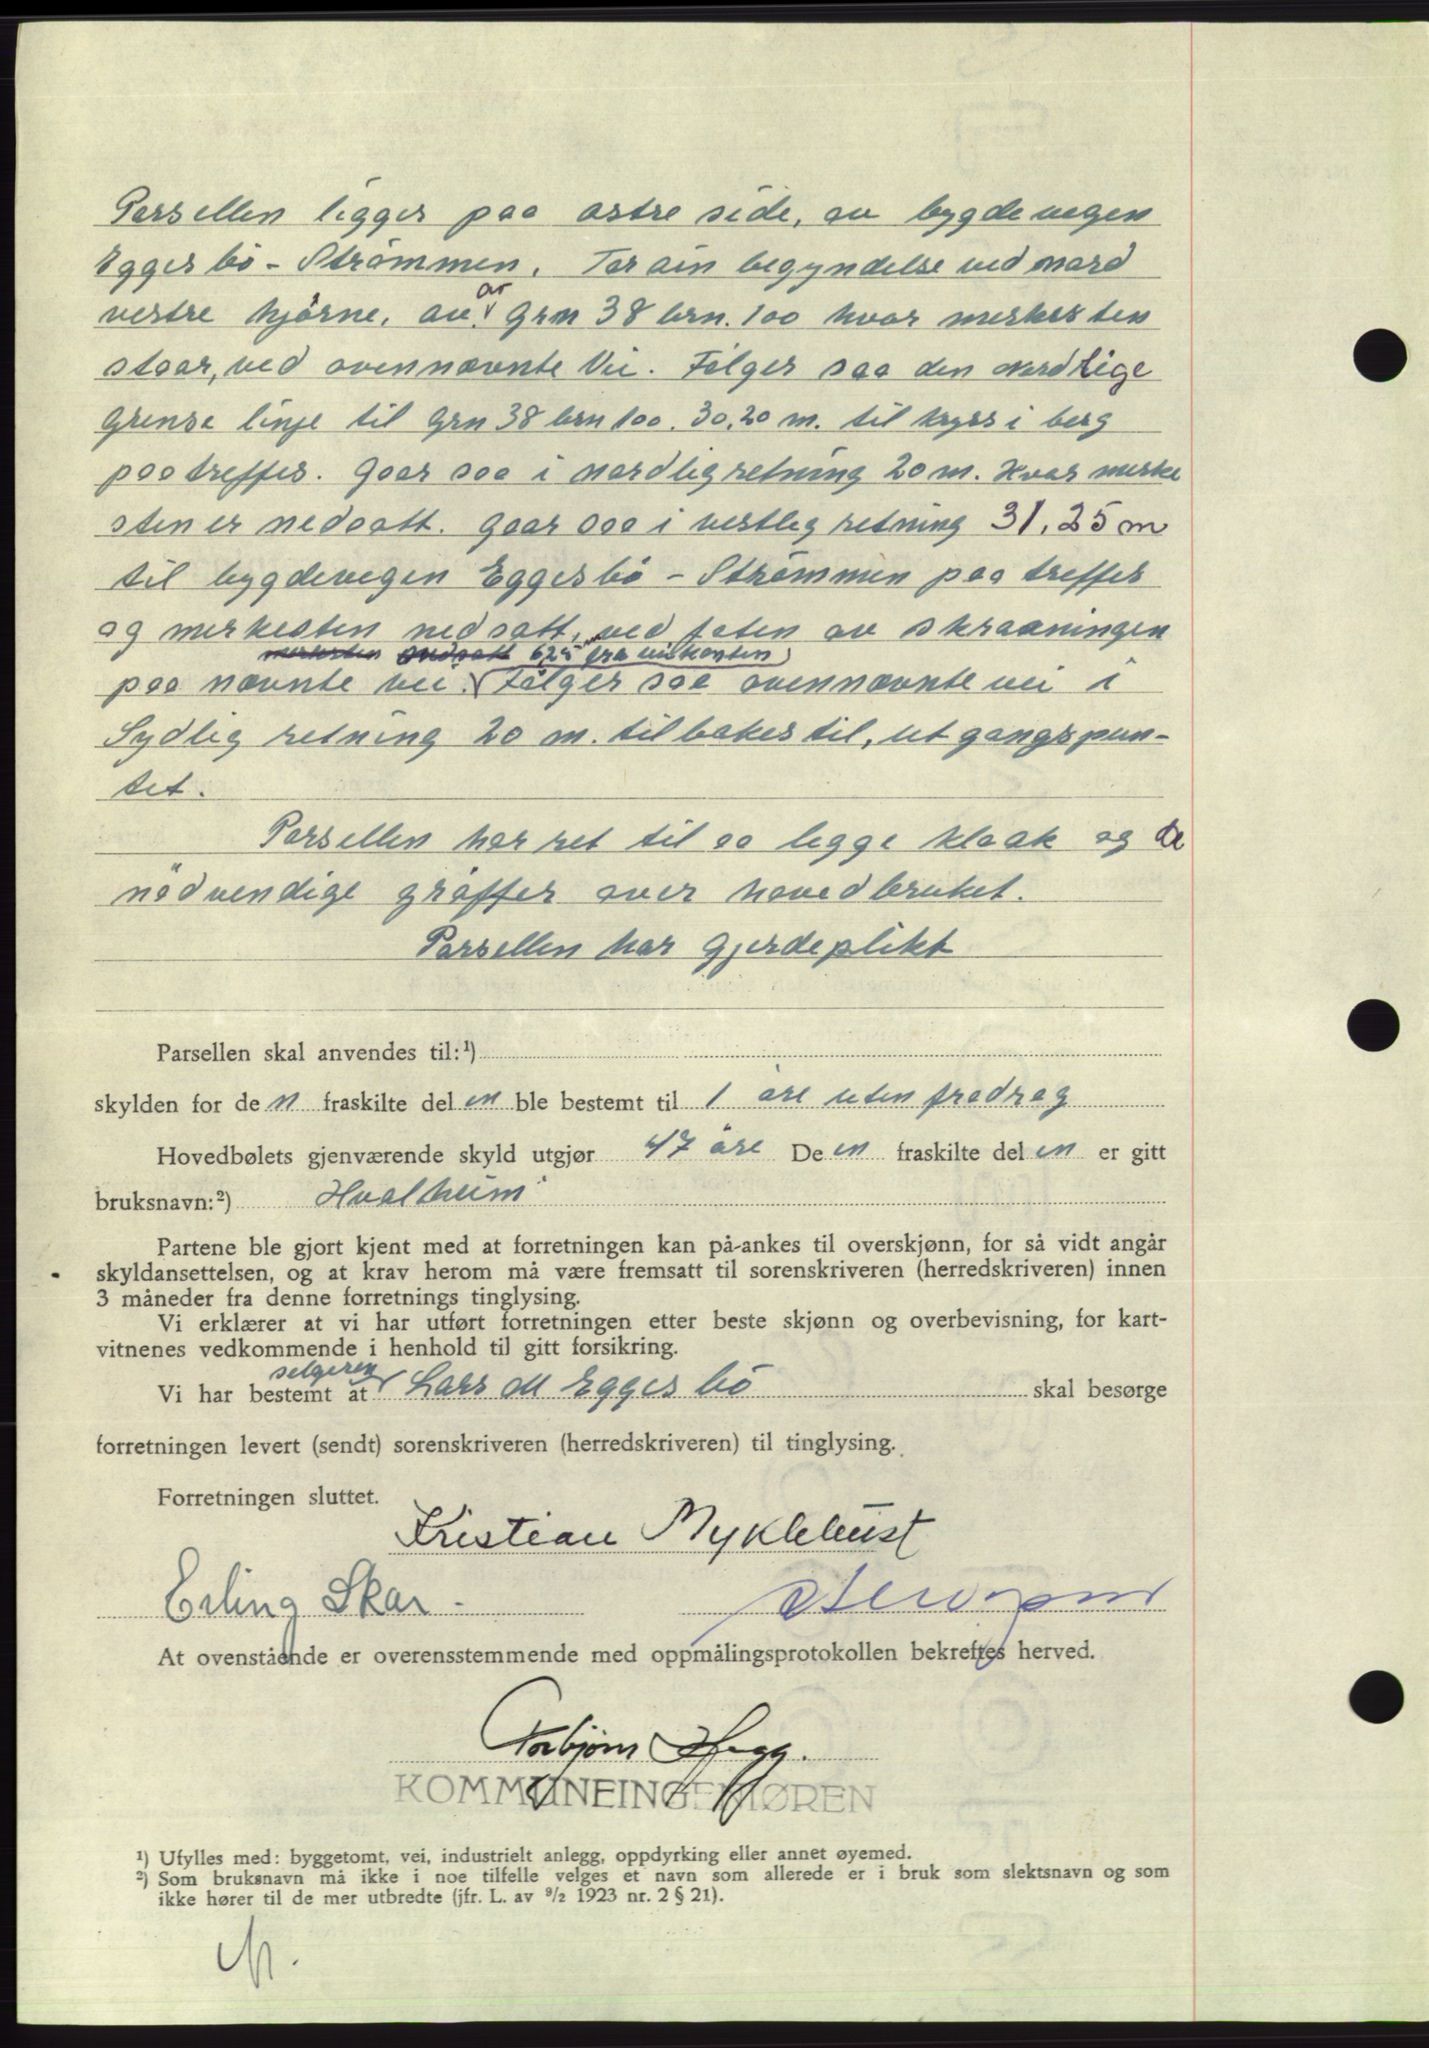 Parsellen ligger paa östre side, av bygdevegen
Eggesbö - Strömmen. Tar sin begyndelse ved nord
vestre hjörne, av grn 38 brn. 100 hvor merkesten
staar, ved ovennævnte Vei. Fölger saa den nordlige
grense linje til grn 38 brn 100. 30,20 m. til kryss i berg
paatreffes. gaar saa i nordlig retning 20 m. Hvor merke
sten er nedsatt. gaar saa i vestlig retning 31,25 m
til bygdevegen Eggesbö - Strömmen paa treffes
og merkesten nedsatt, ved foten av skraaningen
merkesten nedsatt 6,25 fra veikanten
paa nævnte vei. Fölger saa ovennævnte vei i
Sydlig retning 20 m. tilbakes til, utgangspun-
tet.
Parsellen har ret til aa legge kloak og de
nödvendige gröffter over hovedbruket.
Parsellen har gjerdeplikt
Parsellen skal anvendes til:¹)
skylden for de n fraskilte del en ble bestemt til 1 öre uten fradrag
Hovedbølets gjenværende skyld utgjør 47 öre De en fraskilte del en er gitt
bruksnavn:²) Hvalheim
Partene ble gjort kjent med at forretningen kan på-ankes til overskjønn, for så vidt angår
skyldansettelsen, og at krav herom må være fremsatt til sorenskriveren (herredskriveren) innen
3 måneder fra denne forretnings tinglysing.
Vi erklærer at vi har utført forretningen etter beste skjønn og overbevisning, for kart-
vitnenes vedkommende i henhold til gitt forsikring.
selgeren
Vi har bestemt at Lars M Eggesbö skal besørge
forretningen levert (sendt) sorenskriveren (herredskriveren) til tinglysing.
Forretningen sluttet.
Kristian Myklebust
Erling Skar.
At ovenstående er overensstemmende med oppmålingsprotokollen bekreftes herved.
Torbjørn Hegg.
KOMMUNEINGENIØREN
¹) Ufylles med: byggetomt, vei, industrielt anlegg, oppdyrking eller annet øyemed.
²) Som bruksnavn må ikke i noe tilfelle velges et navn som allerede er i bruk som slektsnavn og som
ikke hører til de mer utbredte (jfr. L. av ⁹/₂ 1923 nr. 2 § 21).